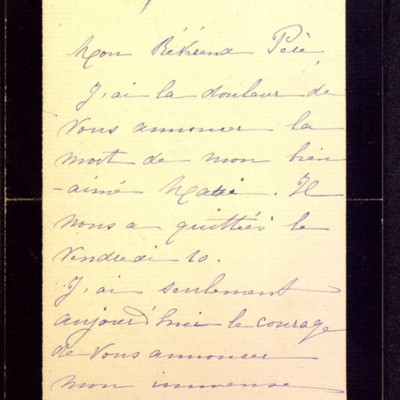 Mon Révérend Père,
J'ai la douleur de
vous annoncer la
mort de mon bien
-aimé Mari. Il
nous a quittées le
Vendredi 10.
J'ai seulement
aujourd'hui le courage
de vous annoncer
mon immense